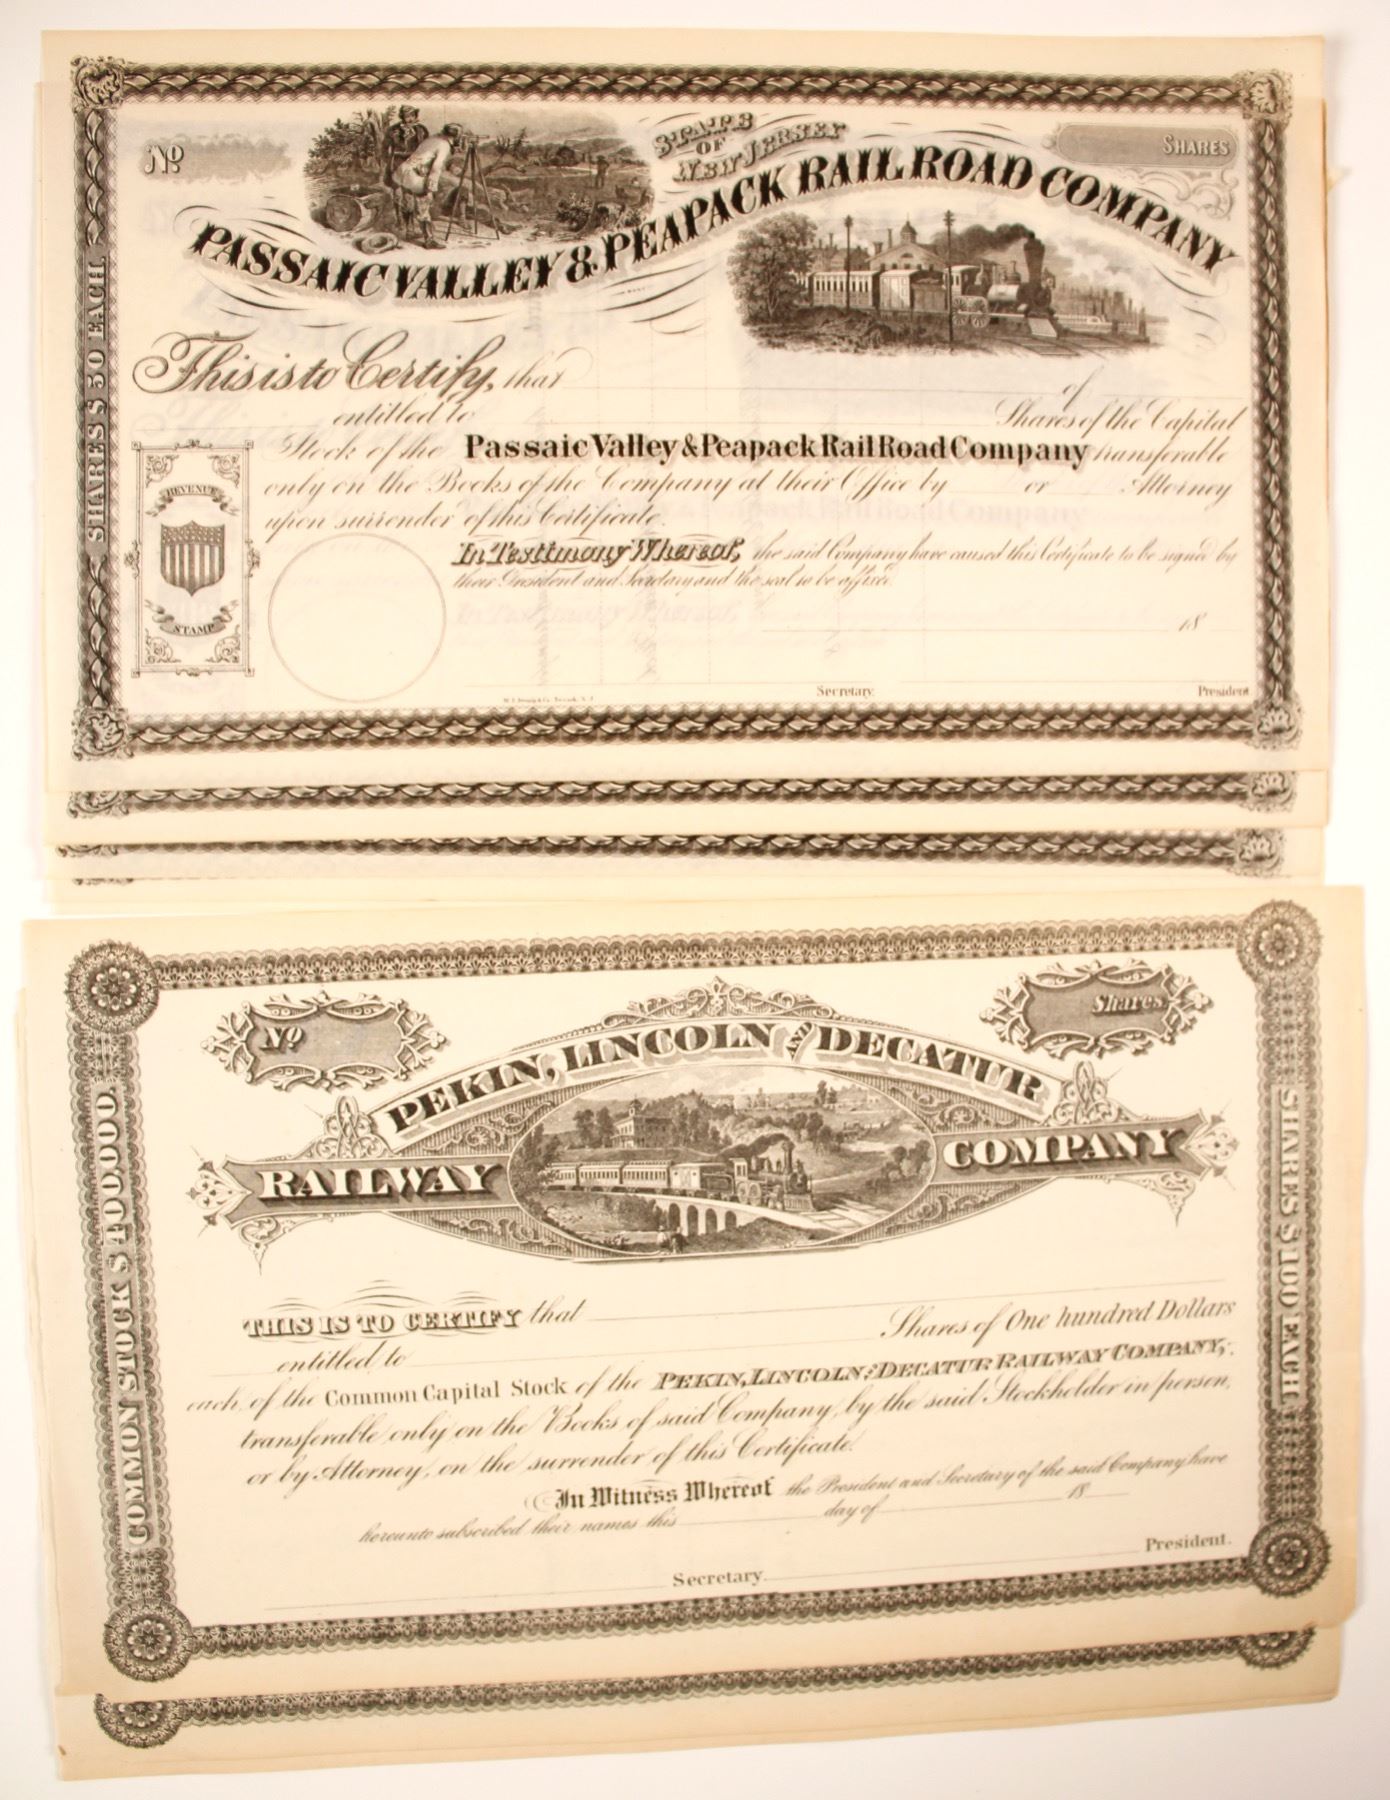 STATE
OF
NEW JERSEY
No
SHARES
PASSAIC VALLEY & PEAPACK RAIL ROAD COMPANY
SHARES 50 EACH
This is to Certify, that of
entitled to Shares of the Capital
Stock of the Passaic Valley & Peapack Rail Road Company transferable
only on the Books of the Company at their Office by or Attorney
upon surrender of this Certificate.
REVENUE
STAMP
In Testimony Whereof, the said Company have caused this Certificate to be signed by
their President and Secretary and the seal to be affixed.
18
Secretary.
President
No
Shares
PEKIN, LINCOLN AND DECATUR
RAILWAY COMPANY
COMMON STOCK $400,000.
SHARES $100 EACH
THIS IS TO CERTIFY that
entitled to Shares of One hundred Dollars
each, of the Common Capital Stock of the PEKIN, LINCOLN & DECATUR RAILWAY COMPANY,
transferable only on the Books of said Company, by the said Stockholder in person,
or by Attorney, on the surrender of this Certificate.
In Witness Whereof the President and Secretary of the said Company have
hereunto subscribed their names this day of 18
President.
Secretary.